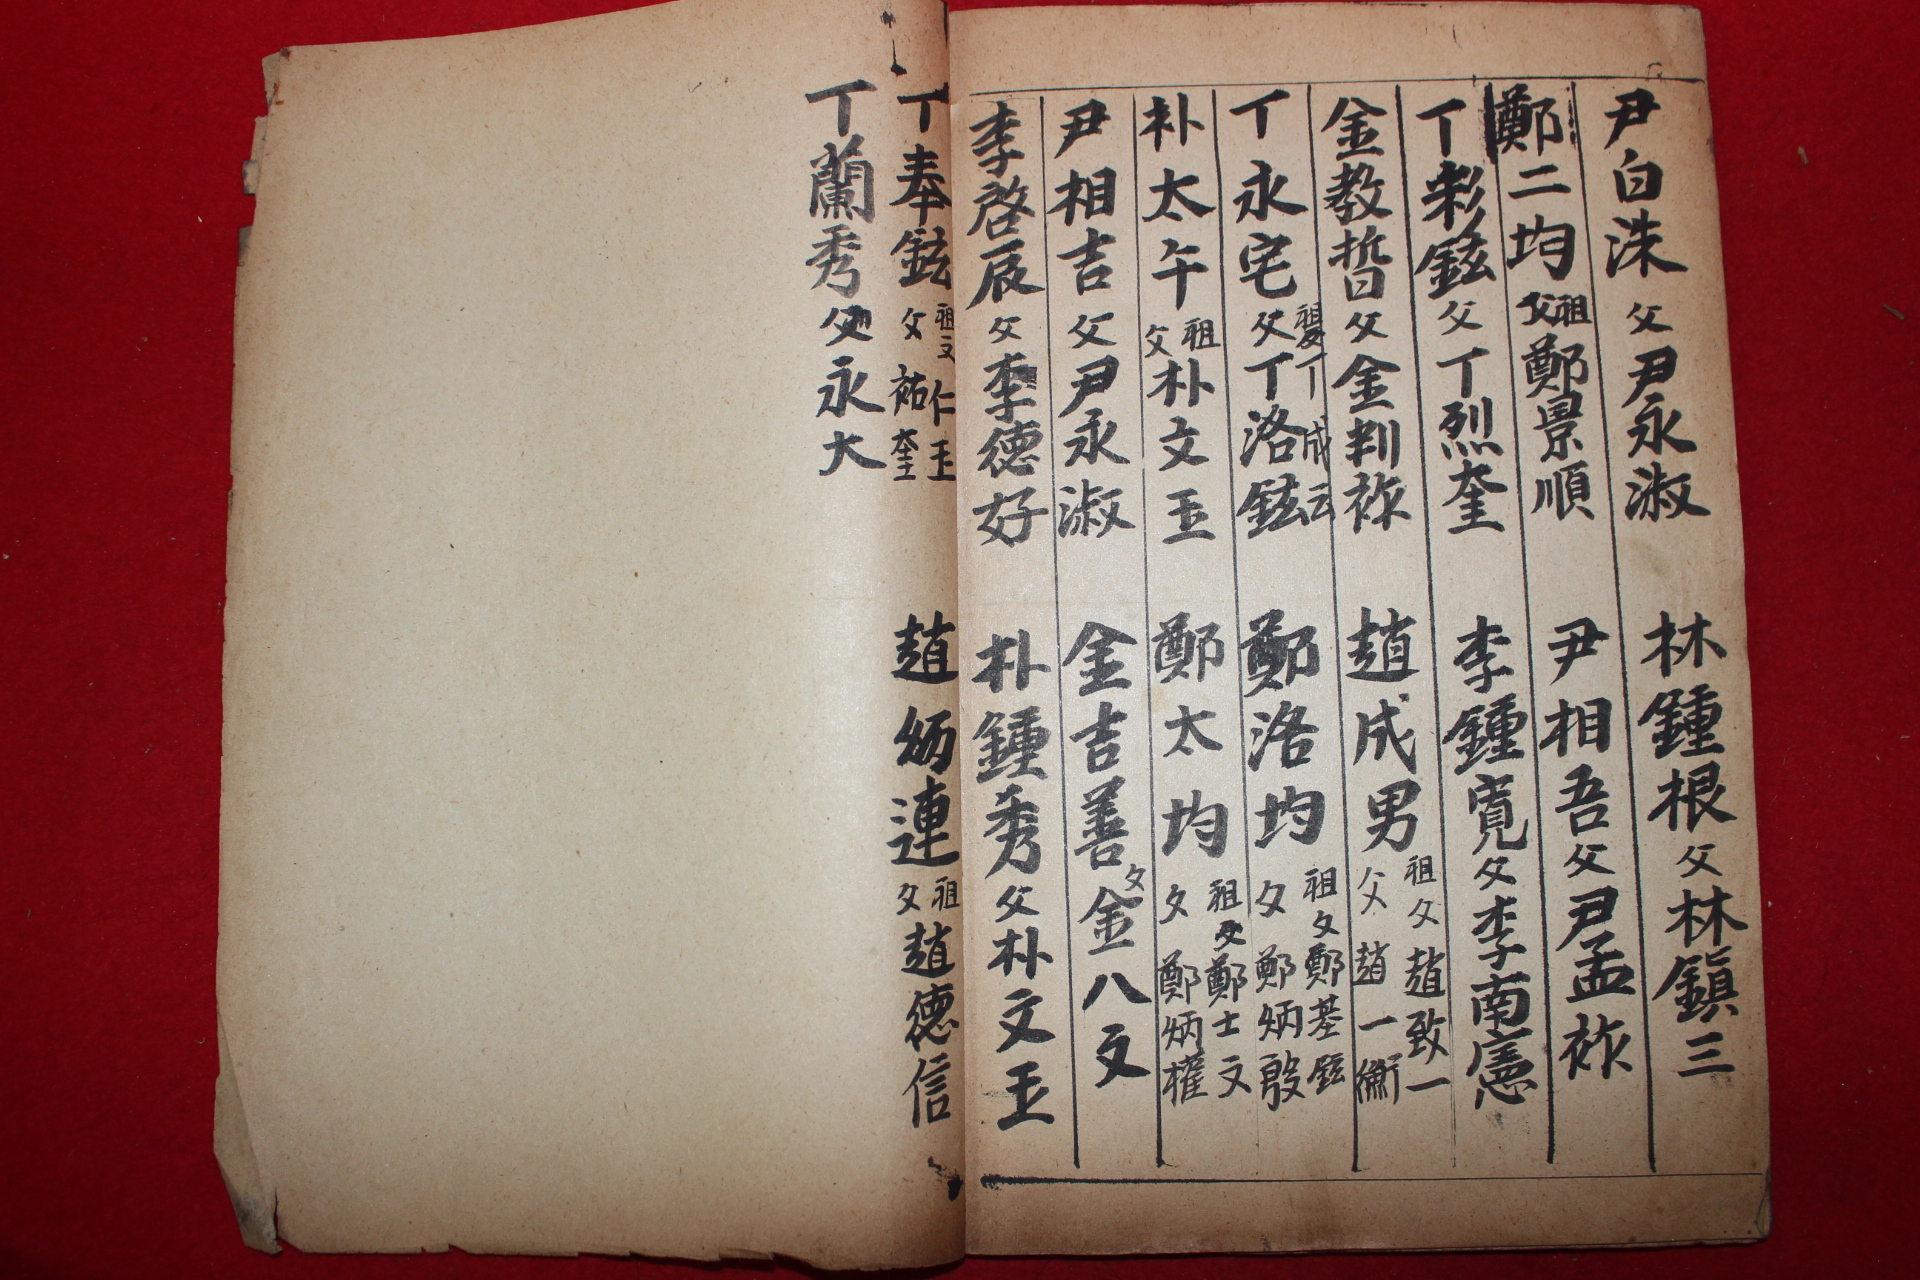 尹白洙 父 尹永淑
林鍾根 父 林鎭三
鄭二均 祖父 鄭景順
尹相吾 父 尹孟祚
丁彩鉉 父 丁烈奎
李鍾寬 父 李南憲
金教哲 父 金判祚
趙成男 祖父 趙致一 父 趙一衡
丁永宅 祖父 丁成云 父 丁洛鉉
鄭洛均 祖父 鄭基鉉 父 鄭炳殷
朴太午 祖父 朴文玉
鄭太均 祖父 鄭士文 父 鄭炳權
尹相吉 父 尹永淑
金吉善 父 金八文
李啓辰 父 李德好
朴鍾秀 父 朴文玉
丁奉鉉 祖父 仁玉 父 祐奎
趙炳連 祖父 趙德信
丁蘭秀 父 永大